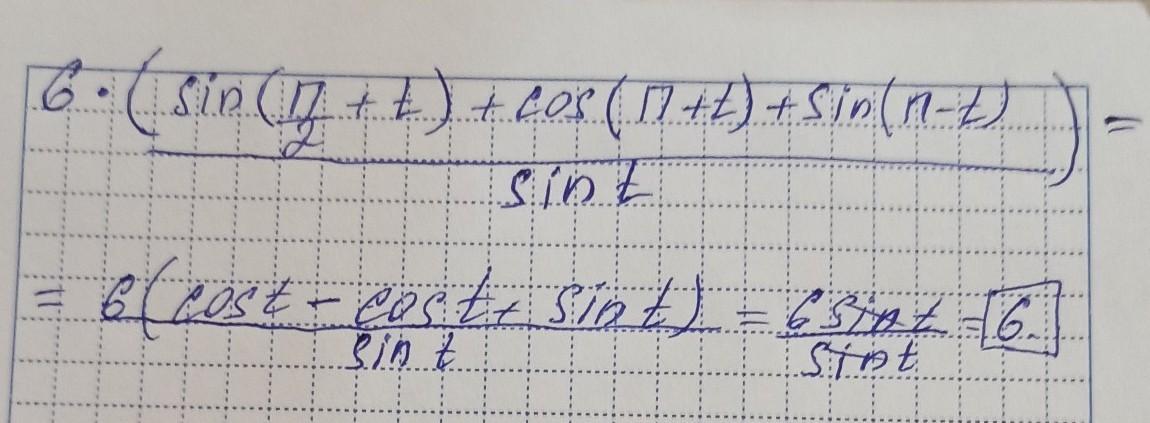 6·(sin(π/2 + t) + cos(π+t) + sin(π-t) / sin t) =
= 6(cos t - cos t + sin t) / sin t = 6 sin t / sin t = 6.